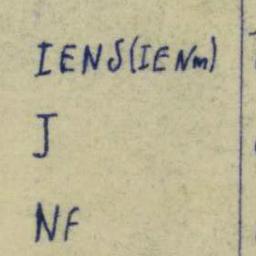 IENS(IENm)
J
NF